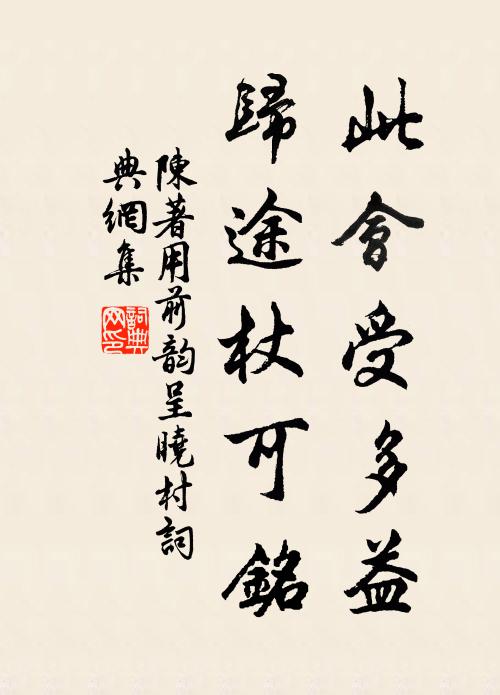 此會受多益
歸途杖可銘
陳著用前韵呈曉村詞
典網集
詞典
网印